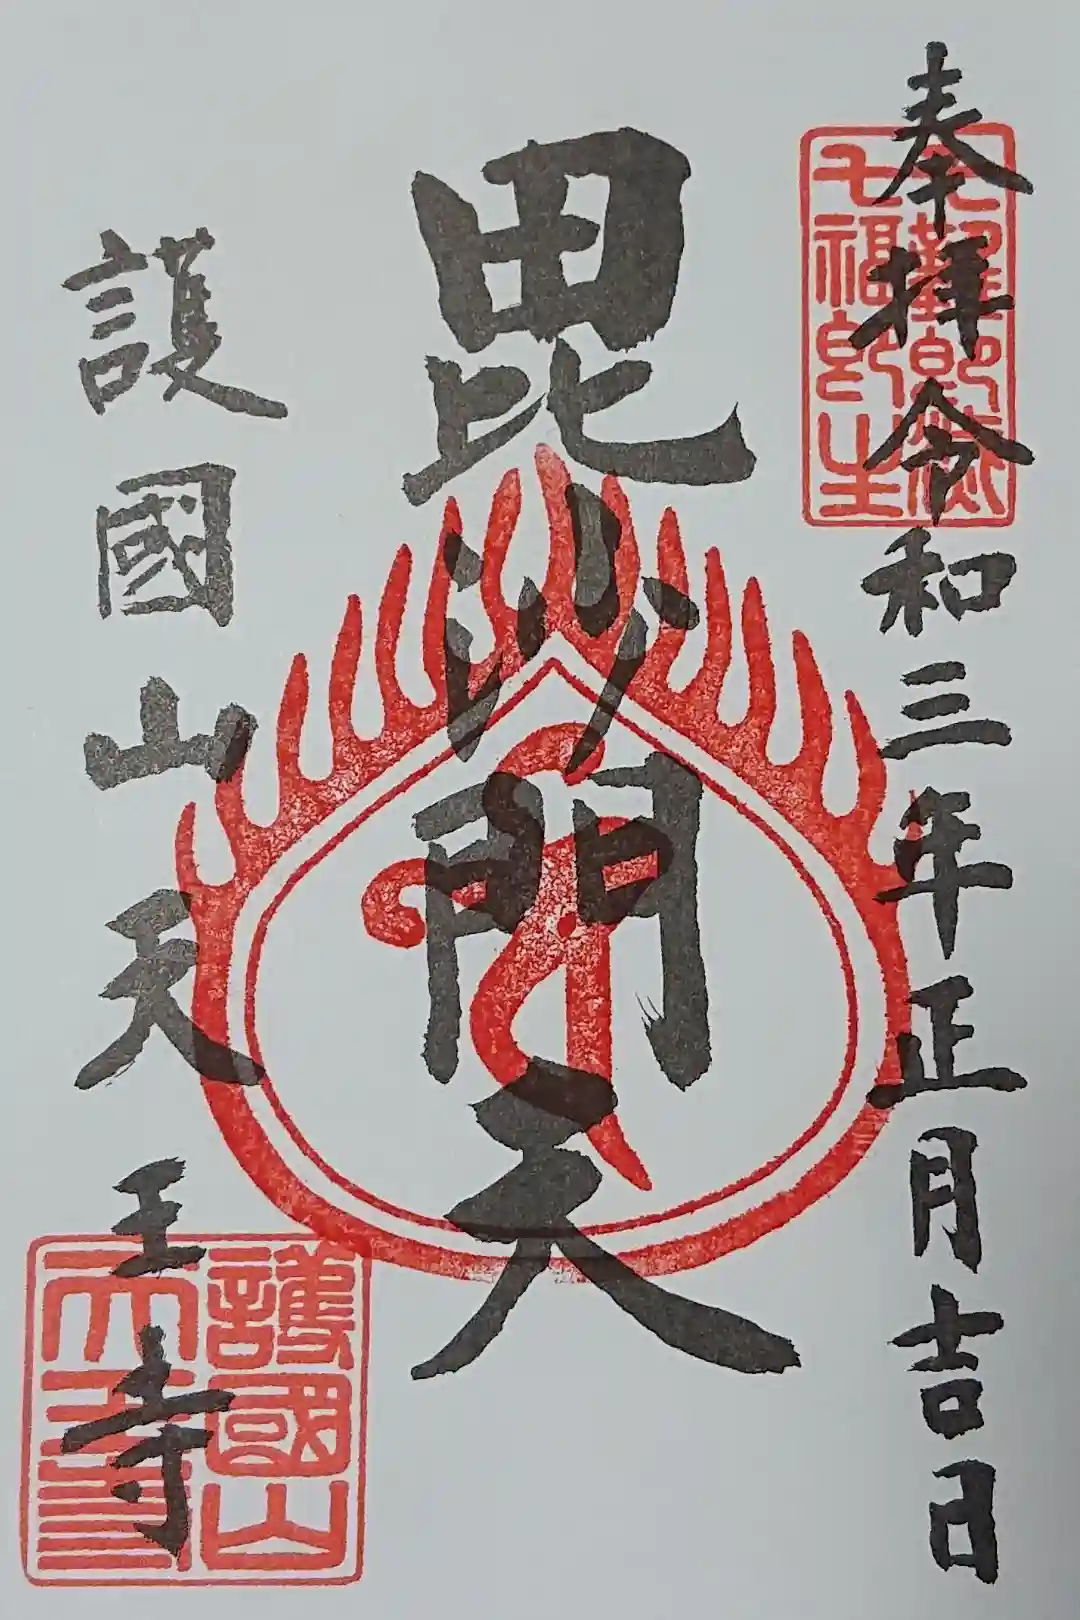 奉拝令和三年正月吉日
毘沙門天
護國山天王寺
七福即生
護國山
天王寺